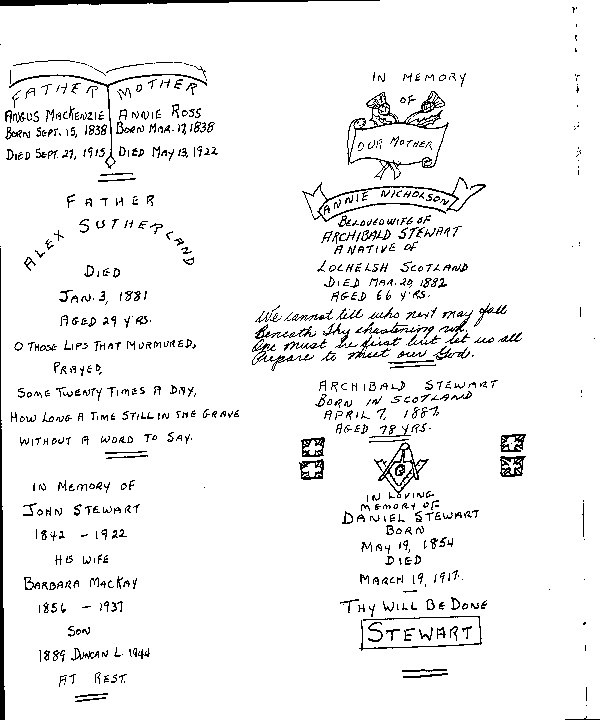 FATHER MOTHER
ANGUS MACKENZIE ANNIE ROSS
BORN SEPT. 15, 1838 BORN MAR. 17, 1838
DIED SEPT. 27, 1915 DIED MAY 13, 1922
FATHER
ALEX SUTHERLAND
DIED
JAN. 3, 1881
AGED 29 YRS.
O THOSE LIPS THAT MURMURED,
PRAYED,
SOME TWENTY TIMES A DAY,
HOW LONG A TIME STILL IN THE GRAVE
WITHOUT A WORD TO SAY.
IN MEMORY OF
JOHN STEWART
1842 - 1922
HIS WIFE
BARBARA MACKAY
1856 - 1937
SON
1889 DUNCAN L. 1944
AT REST.
IN MEMORY
OF
OUR MOTHER
ANNIE NICHOLSON
BELOVED WIFE OF
ARCHIBALD STEWART
A NATIVE OF
LOCHELSH SCOTLAND
DIED MAR. 20, 1882
AGED 66 YRS.
We cannot tell who next may fall
Beneath Thy chastening rod,
One must be first but let us all
Prepare to meet our God.
ARCHIBALD STEWART
BORN IN SCOTLAND
APRIL 7, 1887
AGED 78 YRS.
G
IN LOVING
MEMORY OF
DANIEL STEWART
BORN
MAY 19, 1854
DIED
MARCH 19, 1917.
THY WILL BE DONE
STEWART